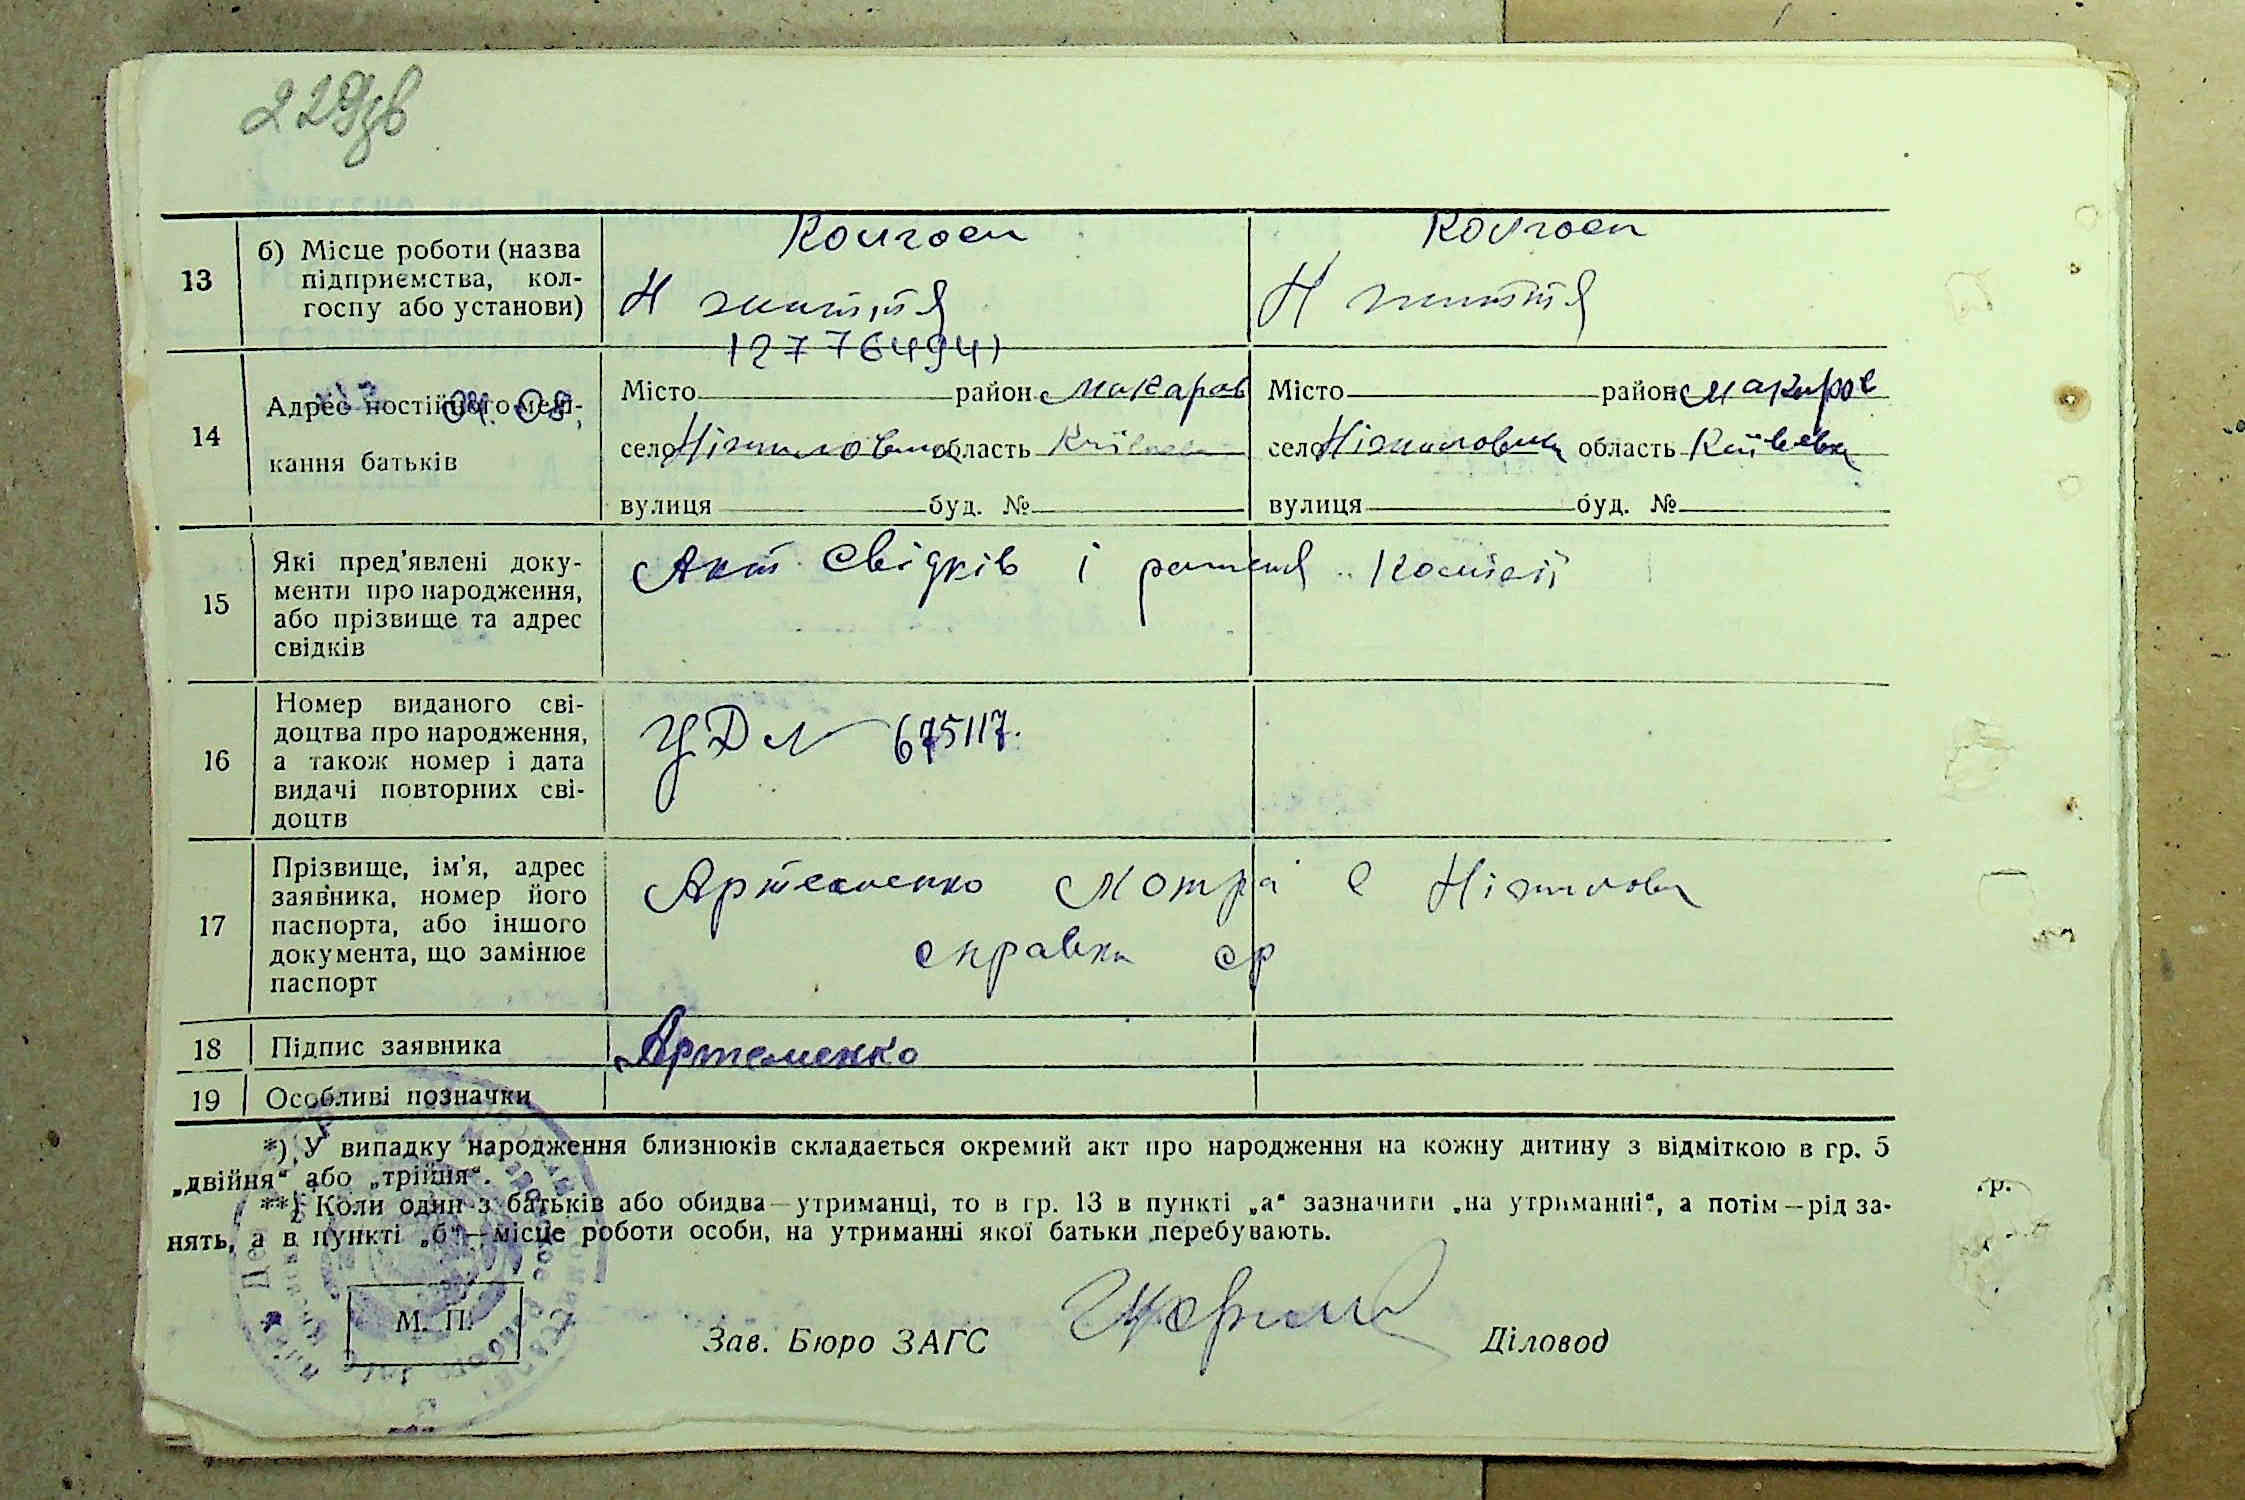 229зв
13
б) Місце роботи (назва
підприємства, кол-
госпу або установи)
Колгосп
Н життя
127764941
Колгосп
Н життя
14
Адрес постійного меш-
кання батьків
04. 08.
Місто район Макаров
село Ніжиловичи область Київська
вулиця буд. №
Місто район Макаров
село Ніжиловичи область Київська
вулиця буд. №
15
Які пред'явлені доку-
менти про народження,
або прізвище та адрес
свідків
Акт свідків і рашення Комісії
16
Номер виданого сві-
доцтва про народження,
а також номер і дата
видачі повторних сві-
доцтв
УД № 675117.
17
Прізвище, ім'я, адрес
заявника, номер його
паспорта, або іншого
документа, що замінює
паспорт
Артеменко Мотря с Ніжилови
справка ср
18
Підпис заявника
Артеменко
19
Особливі позначки
*) У випадку народження близнюків складається окремий акт про народження на кожну дитину з відміткою в гр. 5
„двійня“ або „трійня“.
**) Коли один з батьків або обидва—утриманці, то в гр. 13 в пункті „а“ зазначити „на утриманні“, а потім—рід за-
нять, а в пункті „б“—місце роботи особи, на утриманні якої батьки перебувають.
М. П.
Зав. Бюро ЗАГС
Діловод
гр.